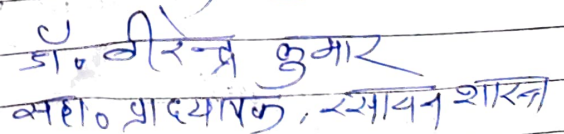 डॉ० वीरेन्द्र कुमार
सहा० प्राध्यापक, रसायन शास्त्र